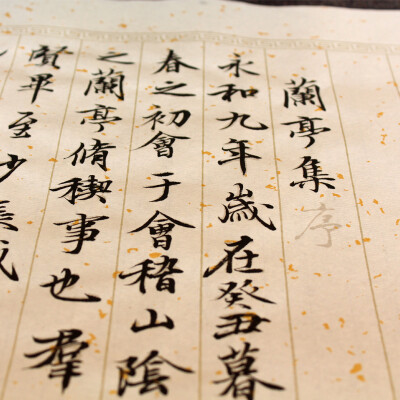 蘭亭集序
永和九年歲在癸丑暮
春之初會于會稽山陰
之蘭亭脩稧事也群
賢畢至少長咸